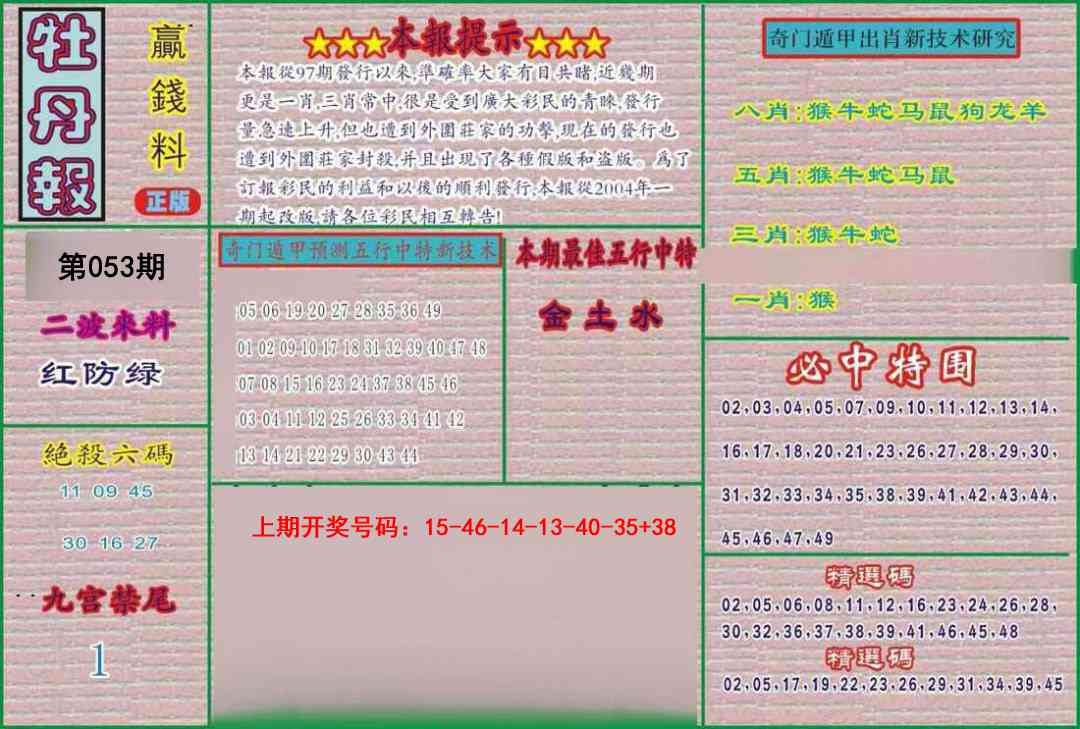 牡丹報
贏錢料
正版
★★★本報提示★★★
本報從97期發行以來,準確率大家有目共睹,近幾期
更是一肖,三肖常中,很是受到廣大彩民的青睞,發行
量急速上升,但也遭到外圍莊家的功擊,現在的發行也
遭到外圍莊家封殺,并且出現了各種假版和盜版。爲了
訂報彩民的利益和以後的順利發行,本報從2004年一
期起改版,請各位彩民相互轉告!
奇门遁甲出肖新技术研究
八肖:猴牛蛇马鼠狗龙羊
五肖:猴牛蛇马鼠
三肖:猴牛蛇
一肖:猴
第053期
二波來料
红防绿
奇门遁甲预测五行中特新技术
05 06 19 20 27 28 35 36 49
01 02 09 10 17 18 31 32 39 40 47 48
07 08 15 16 23 24 37 38 45 46
03 04 11 12 25 26 33 34 41 42
13 14 21 22 29 30 43 44
本期最佳五行中特
金土水
必中特围
02,03,04,05,07,09,10,11,12,13,14,
16,17,18,20,21,23,26,27,28,29,30,
31,32,33,34,35,38,39,41,42,43,44,
45,46,47,49
絕殺六碼
11 09 45
30 16 27
九宫禁尾
1
上期开奖号码：15-46-14-13-40-35+38
精選碼
02,05,06,08,11,12,16,23,24,26,28,
30,32,36,37,38,39,41,46,45,48
精選碼
02,05,17,19,22,23,26,29,31,34,39,45